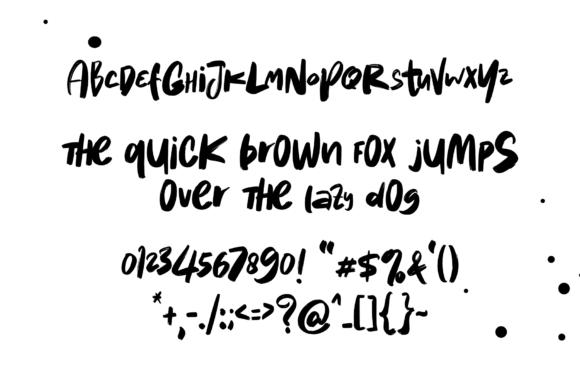 ABCDEfGHiJKLMNOPQRStuVWXYZ
THe quiCK brOWn FOX juMPS
Over THe Lazy dOg
01234567890! "#$%&'()
*+,-./:;<=>?@^_[]{}~